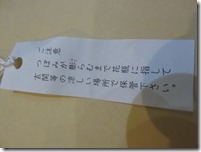 ご注意
つぼみが膨らむまで花瓶に指して
玄関等の涼しい場所で保管下さい。